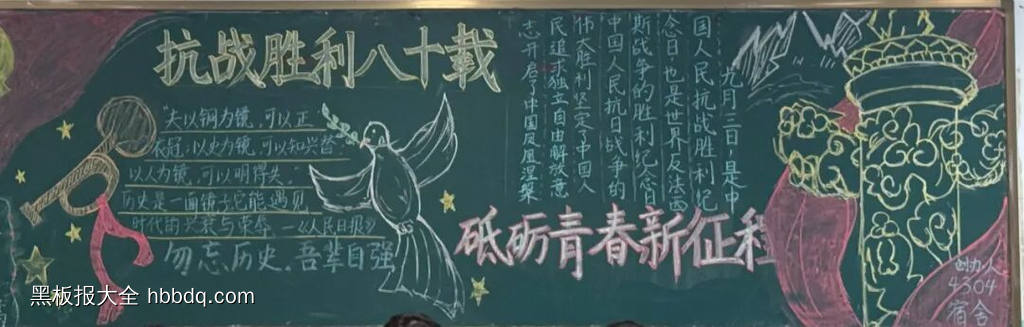 抗战胜利八十载
“夫以铜为镜,可以正
衣冠;以史为镜,可以知兴替
以人为镜,可以明得失。”
历史是一面镜子它能遇见
时代的兴衰与荣辱。—《人民日报》
勿忘历史,吾辈自强
九月三日,是中
国人民抗战胜利纪
念日,也是世界反法西
斯战争的胜利纪念日
中国人民抗日战争的
伟大胜利坚定了中国人
民追求独立自由解放意
志开启了中国凤凰涅槃
砥砺青春新征程
创办人
4304
宿舍
黑板报大全 hbbdq.com